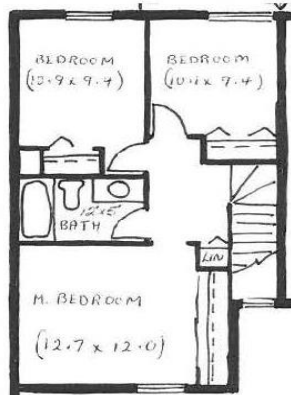 BEDROOM
(10.9 x 9.4)
BEDROOM
(10.1 x 9.4)
12x5
BATH
LIN
M. BEDROOM
(12.7 x 12.0)